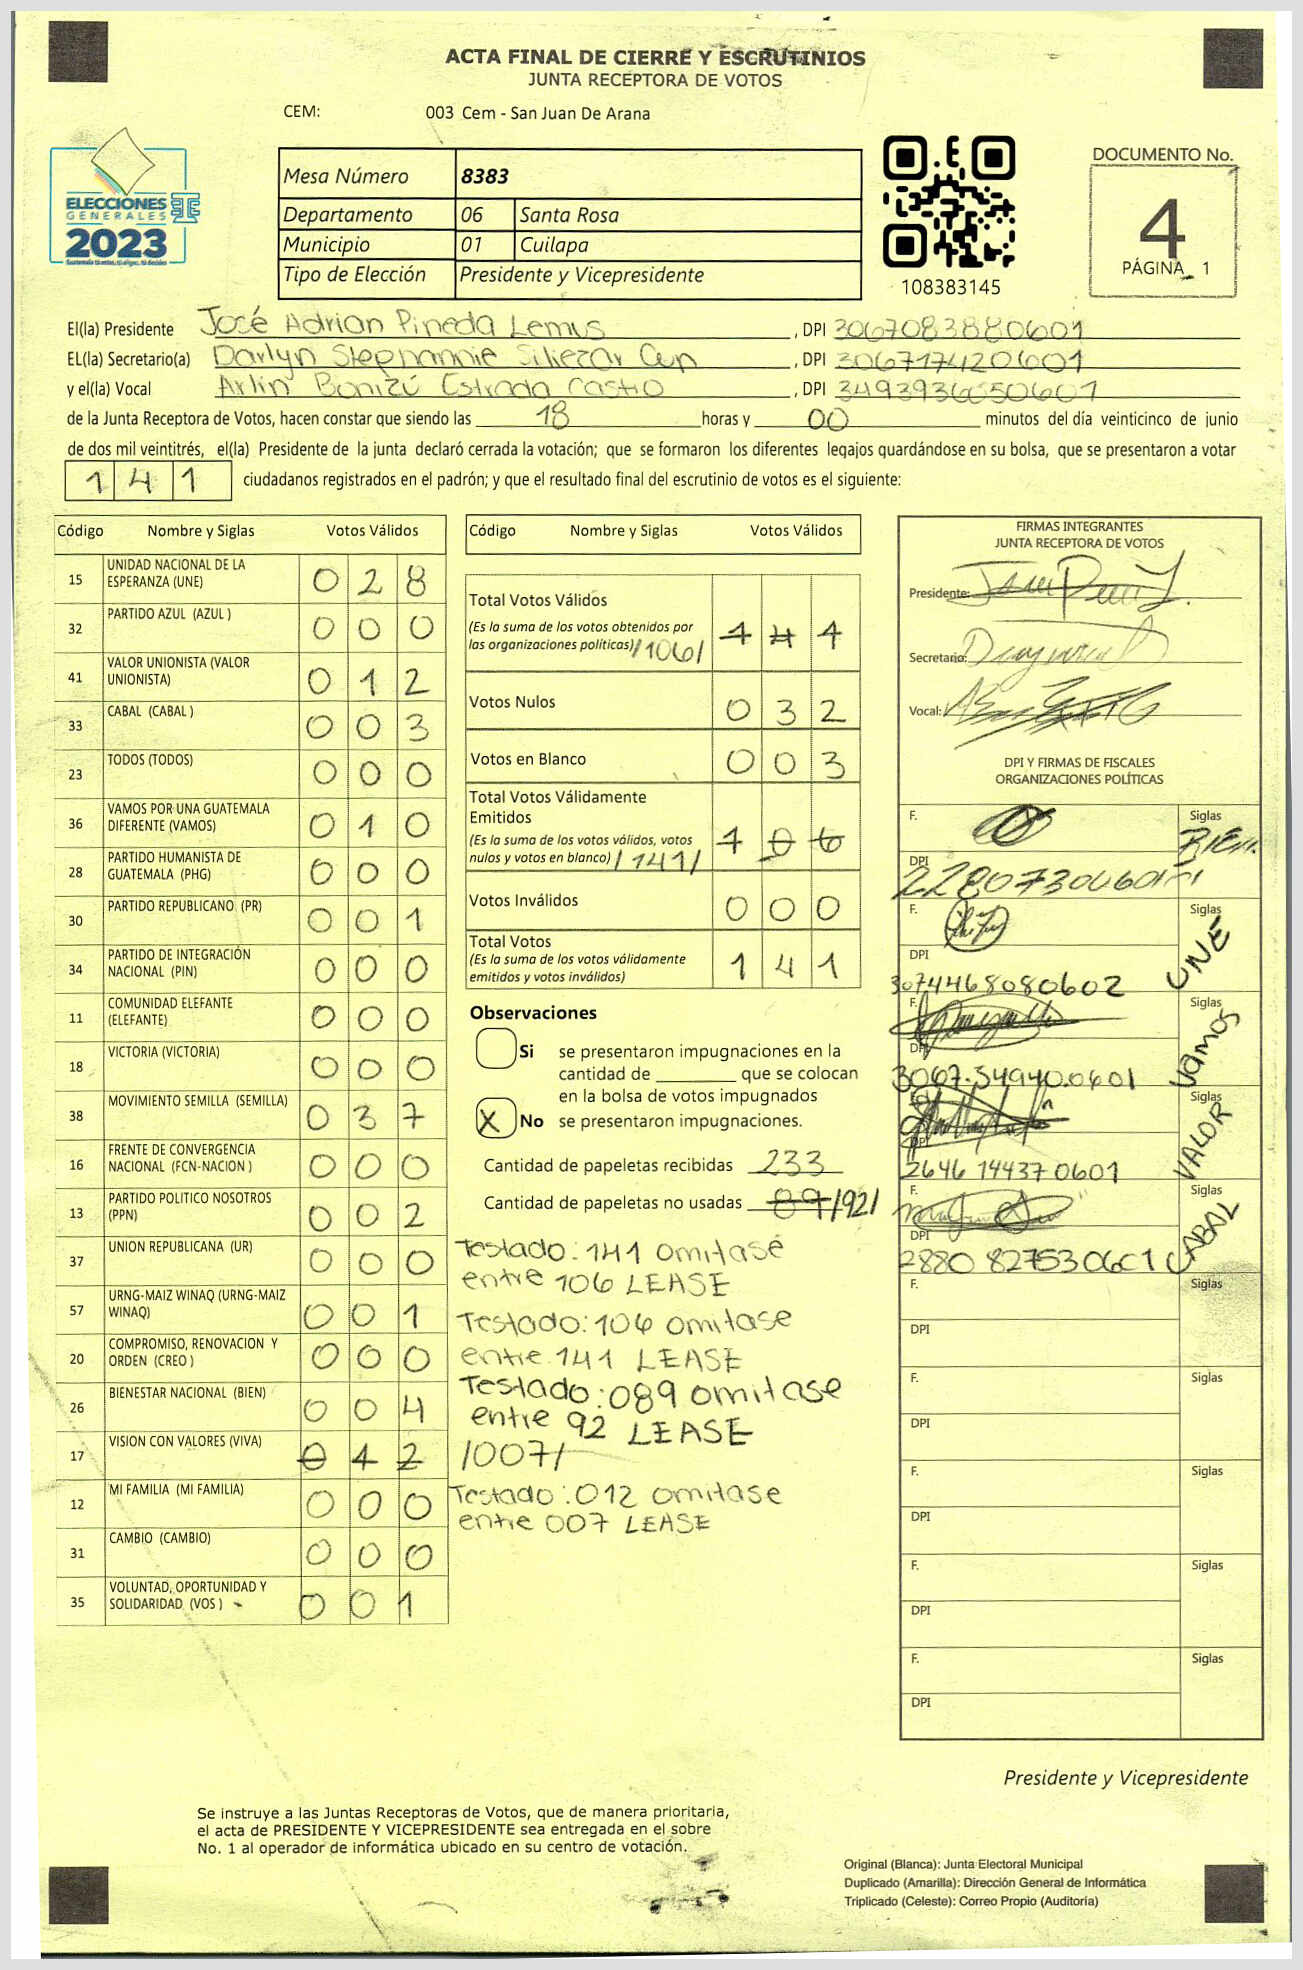 ACTA FINAL DE CIERRE Y ESCRUTINIOS
JUNTA RECEPTORA DE VOTOS
CEM: 003 Cem - San Juan De Arana
ELECCIONES
GENERALES
2023
Mesa Número 8383
Departamento 06 Santa Rosa
Municipio 01 Cuilapa
Tipo de Elección Presidente y Vicepresidente
108383145
DOCUMENTO No.
4
PÁGINA 1
El(la) Presidente José Adrian Pineda Lemus, DPI 3067083880601
EL(la) Secretario(a) Darlyn Stephannie, DPI 3067174120601
y el(la) Vocal Arlin Estrada Castro, DPI
de la Junta Receptora de Votos, hacen constar que siendo las 18 horas y 00 minutos del día veinticinco de junio
de dos mil veintitrés, el(la) Presidente de la junta declaró cerrada la votación; que se formaron los diferentes legajos guardándose en su bolsa, que se presentaron a votar
141 ciudadanos registrados en el padrón; y que el resultado final del escrutinio de votos es el siguiente:
Código Nombre y Siglas Votos Válidos
15 UNIDAD NACIONAL DE LA ESPERANZA (UNE) 028
32 PARTIDO AZUL (AZUL ) 000
41 VALOR UNIONISTA (VALOR UNIONISTA) 012
33 CABAL (CABAL ) 003
23 TODOS (TODOS) 000
36 VAMOS POR UNA GUATEMALA DIFERENTE (VAMOS) 010
28 PARTIDO HUMANISTA DE GUATEMALA (PHG) 000
30 PARTIDO REPUBLICANO (PR) 001
34 PARTIDO DE INTEGRACIÓN NACIONAL (PIN) 000
11 COMUNIDAD ELEFANTE (ELEFANTE) 000
18 VICTORIA (VICTORIA) 000
38 MOVIMIENTO SEMILLA (SEMILLA) 037
16 FRENTE DE CONVERGENCIA NACIONAL (FCN-NACION ) 000
13 PARTIDO POLITICO NOSOTROS (PPN) 002
37 UNION REPUBLICANA (UR) 000
57 URNG-MAIZ WINAQ (URNG-MAIZ WINAQ) 001
20 COMPROMISO, RENOVACION Y ORDEN (CREO ) 000
26 BIENESTAR NACIONAL (BIEN) 004
17 VISION CON VALORES (VIVA) 012 /007/
12 MI FAMILIA (MI FAMILIA) 000
31 CAMBIO (CAMBIO) 000
35 VOLUNTAD, OPORTUNIDAD Y SOLIDARIDAD (VOS ) 001
Código Nombre y Siglas Votos Válidos
Total Votos Válidos
(Es la suma de los votos obtenidos por
las organizaciones políticas) /106/ 141
Votos Nulos 032
Votos en Blanco 003
Total Votos Válidamente
Emitidos
(Es la suma de los votos válidos, votos
nulos y votos en blanco) /141/ 106
Votos Inválidos 000
Total Votos
(Es la suma de los votos válidamente
emitidos y votos inválidos) 141
Observaciones
Si se presentaron impugnaciones en la
cantidad de ________ que se colocan
en la bolsa de votos impugnados
X No se presentaron impugnaciones.
Cantidad de papeletas recibidas 233
Cantidad de papeletas no usadas 89 /92/
Testado: 141 omitase
entre 106 LEASE
Testado: 106 omitase
entre 141 LEASE
Testado: 089 omitase
entre 92 LEASE
Testado: 012 omitase
entre 007 LEASE
FIRMAS INTEGRANTES
JUNTA RECEPTORA DE VOTOS
Presidente:
Secretario:
Vocal:
DPI Y FIRMAS DE FISCALES
ORGANIZACIONES POLÍTICAS
F. Siglas BIEN
DPI
F. Siglas UNE
DPI 3074468080602
F. Siglas Vamos
DPI 3067.34940.0601
F. Siglas VALOR
DPI 2646 14437 0601
F. Siglas CABAL
DPI 2880 82753 0601
F. Siglas
DPI
F. Siglas
DPI
F. Siglas
DPI
F. Siglas
DPI
F. Siglas
DPI
Presidente y Vicepresidente
Se instruye a las Juntas Receptoras de Votos, que de manera prioritaria,
el acta de PRESIDENTE Y VICEPRESIDENTE sea entregada en el sobre
No. 1 al operador de informática ubicado en su centro de votación.
Original (Blanca): Junta Electoral Municipal
Duplicado (Amarilla): Dirección General de Informática
Triplicado (Celeste): Correo Propio (Auditoría)